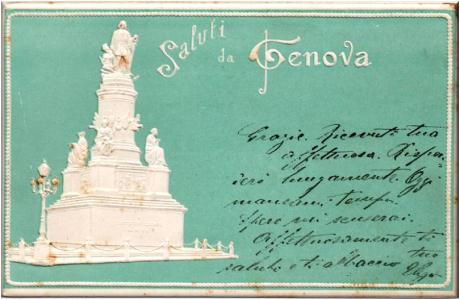 Saluti
da
Genova
Grazie. Ricevuti tua
affettuosa. Rispo
ieri lungamente. Oggi
mancami tempo.
Spero mi scuserai.
Affettuosamente ti
saluto e ti abbraccio tuo